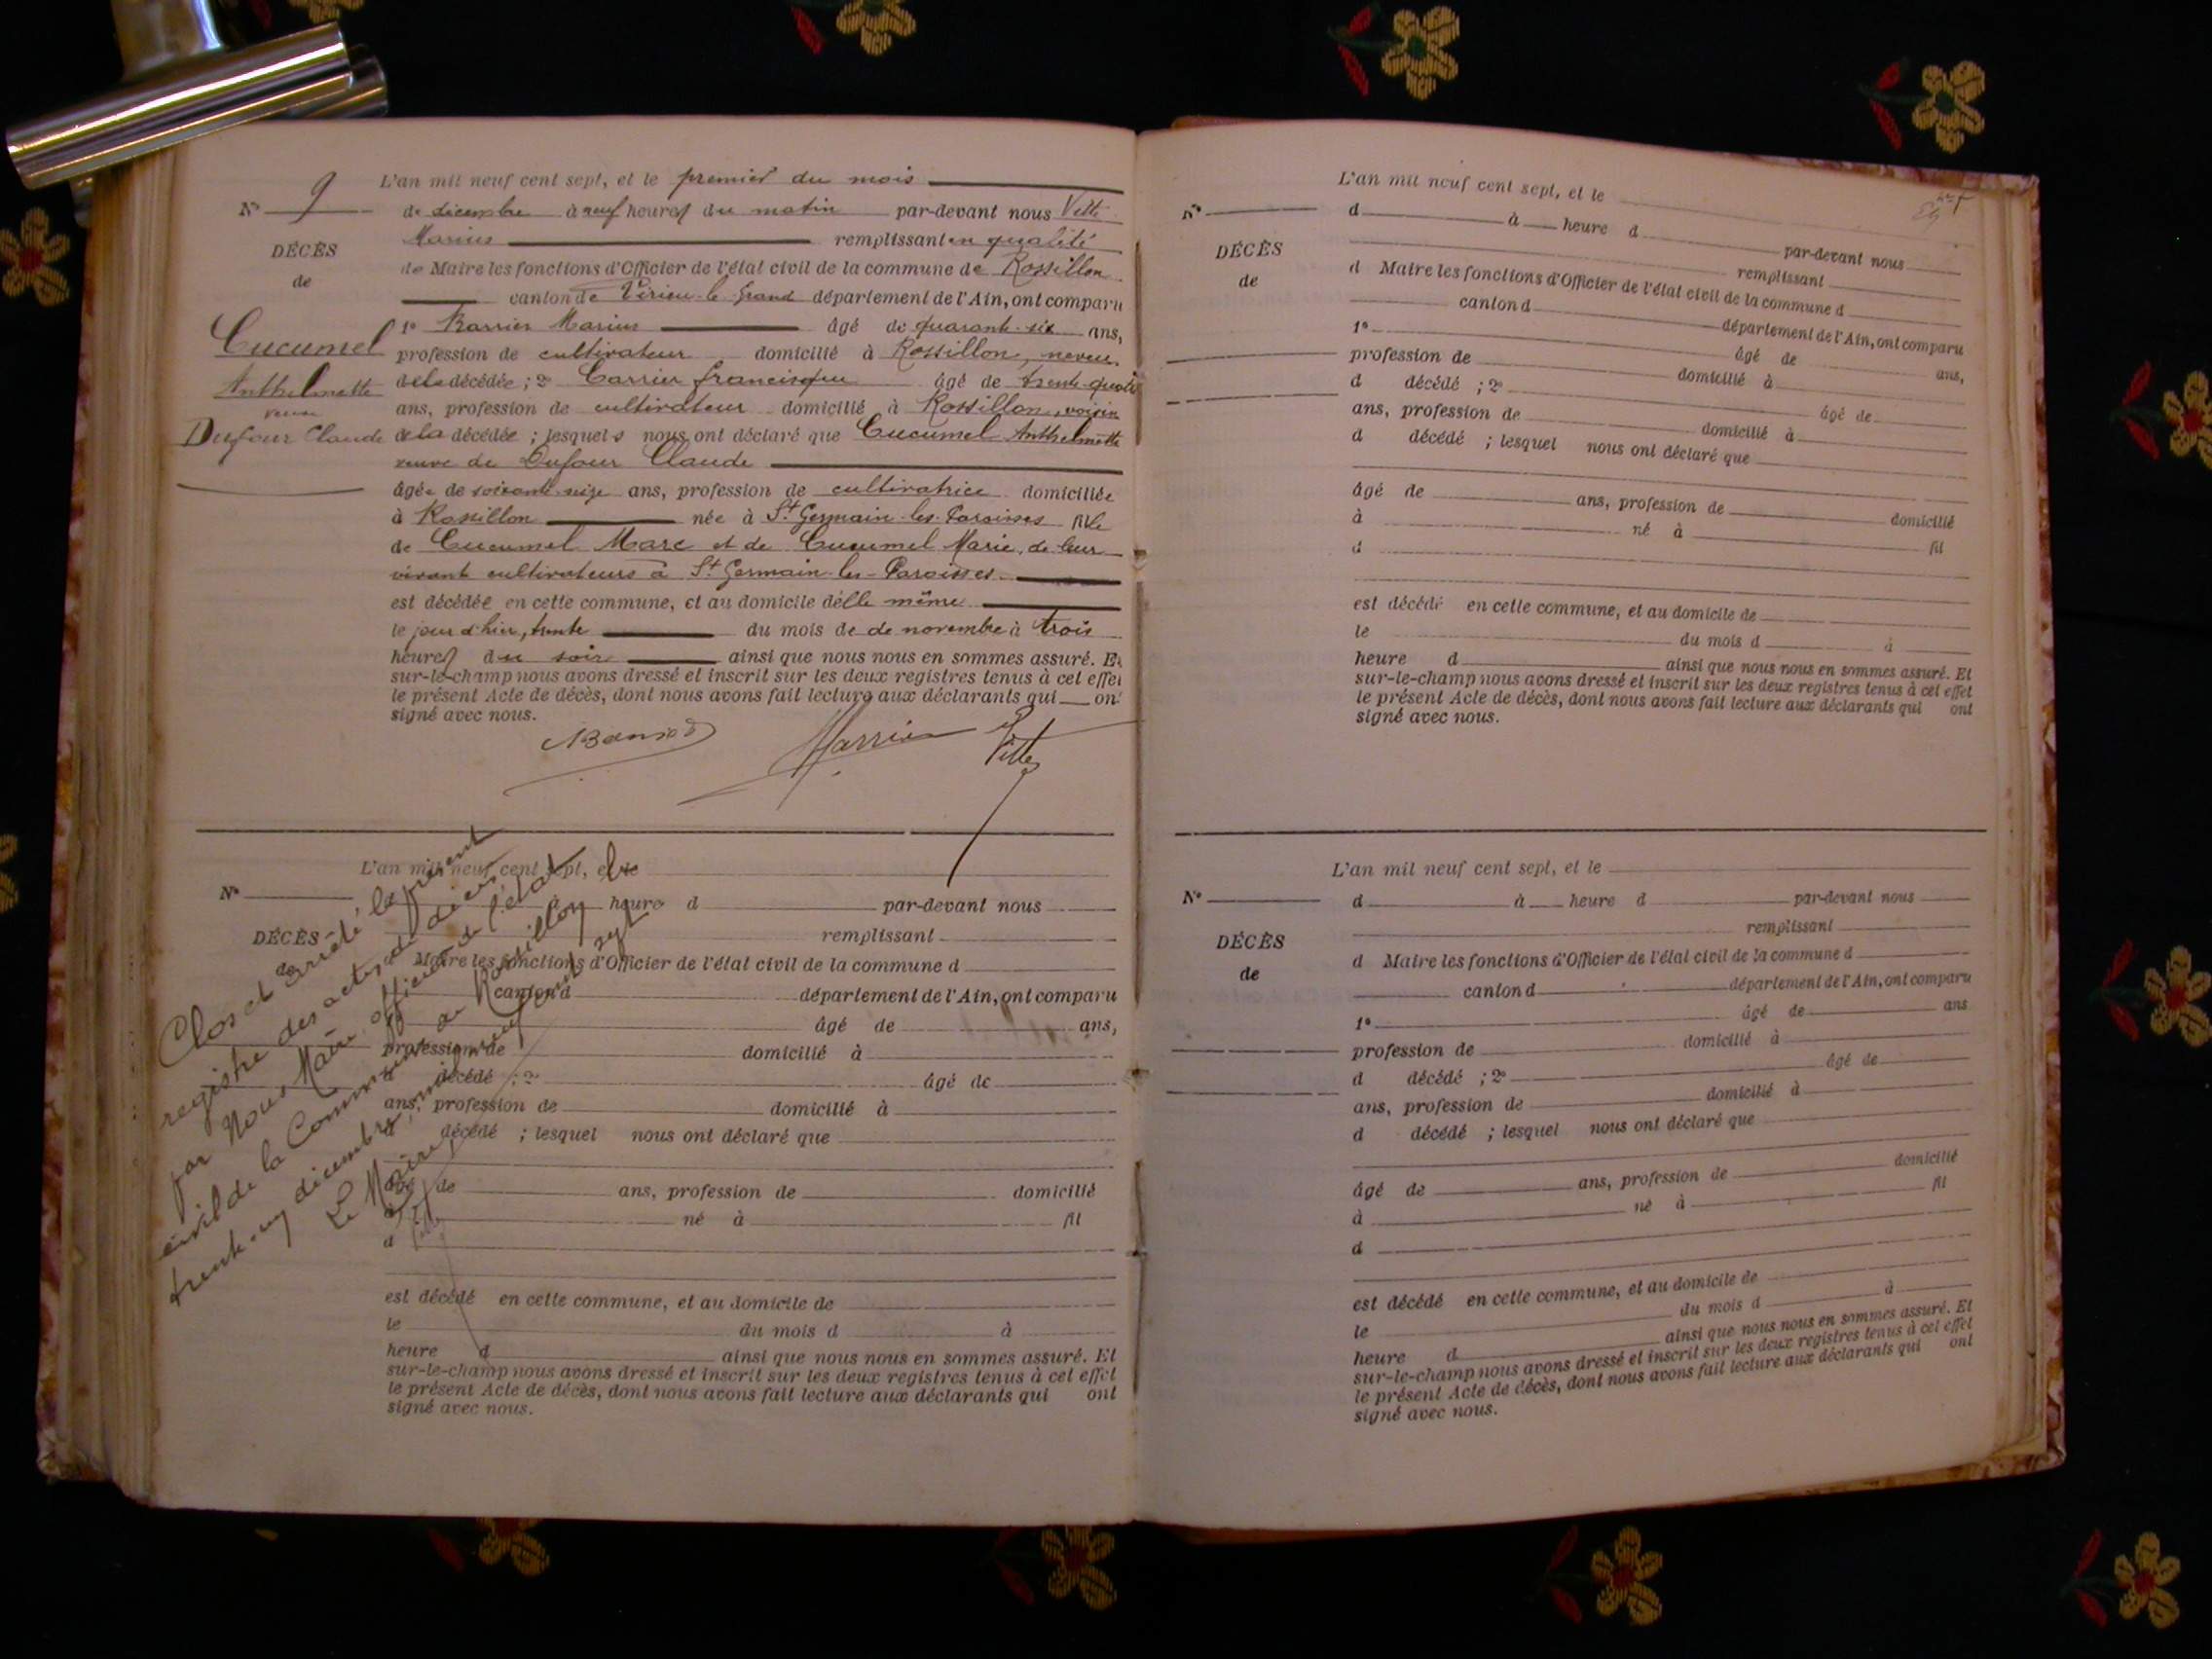 L'an mil neuf cent sept, et le premier du mois
N° 9
de décembre à neuf heures du matin par-devant nous Vette
Marius remplissant en qualité
DÉCÈS
de
de Maire les fonctions d'Officier de l'état civil de la commune de Rossillon
canton de Virieu-le-Grand département de l'Ain, ont comparu
Cucumel
Anthelmette
veuve
Dufour Claude
1° Marius âgé de quarante-six ans,
profession de cultivateur domicilié à Rossillon, neveu
de la décédée ; 2° Carrier francisque âgé de trente-quatre
ans, profession de cultivateur domicilié à Rossillon, voisin
de la décédée ; lesquels nous ont déclaré que Cucumel Anthelmette
veuve de Dufour Claude
âgée de soixante-seize ans, profession de cultivatrice domiciliée
à Rossillon née à St Germain-les-Paroisses fille
de Cucumel Marc et de Cucumel Marie, de leur
vivant cultivateurs à St Germain-les-Paroisses
est décédée en cette commune, et au domicile d'elle même
le jour d'hier, trente du mois de de novembre à trois
heures du soir ainsi que nous nous en sommes assuré. Et
sur-le-champ nous avons dressé et inscrit sur les deux registres tenus à cet effet
le présent Acte de décès, dont nous avons fait lecture aux déclarants qui ont
signé avec nous.
L'an mil neuf cent sept, et le
N°
à heure d par-devant nous
DÉCÈS
de
remplissant
Maire les fonctions d'Officier de l'état civil de la commune d
canton d département de l'Ain, ont comparu
âgé de ans,
profession de domicilié à
décédé ; 2°
âgé de
ans, profession de domicilié à
décédé ; lesquel nous ont déclaré que
âgé de ans, profession de domicilié
à né à fil
d
est décédé en cette commune, et au domicile de
le du mois d à
heure d ainsi que nous nous en sommes assuré. Et
sur-le-champ nous avons dressé et inscrit sur les deux registres tenus à cet effet
le présent Acte de décès, dont nous avons fait lecture aux déclarants qui ont
signé avec nous.
Clos et arrêté le présent
registre des actes de décès
par Nous Maire, officier de l'état
civil de la Commune de Rossillon, le
trente-un décembre mil neuf cent sept
Le Maire,
L'an mil neuf cent sept, et le
N°
d à heure d par-devant nous
DÉCÈS
de
remplissant
d Maire les fonctions d'Officier de l'état civil de la commune d
canton d département de l'Ain, ont comparu
1° âgé de ans,
profession de domicilié à
d décédé ; 2° âgé de
ans, profession de domicilié à
d décédé ; lesquel nous ont déclaré que
âgé de ans, profession de domicilié
à né à fil
d
est décédé en cette commune, et au domicile de
le du mois d à
heure d ainsi que nous nous en sommes assuré. Et
sur-le-champ nous avons dressé et inscrit sur les deux registres tenus à cet effet
le présent Acte de décès, dont nous avons fait lecture aux déclarants qui ont
signé avec nous.
L'an mil neuf cent sept, et le
N°
d à heure d par-devant nous
DÉCÈS
de
remplissant
d Maire les fonctions d'Officier de l'état civil de la commune d
canton d département de l'Ain, ont comparu
1° âgé de ans
profession de domicilié à
d décédé ; 2° âgé de
ans, profession de domicilié à
d décédé ; lesquel nous ont déclaré que
âgé de ans, profession de domicilié
à né à fil
d
est décédé en cette commune, et au domicile de
le du mois d à
heure d ainsi que nous nous en sommes assuré. Et
sur-le-champ nous avons dressé et inscrit sur les deux registres tenus à cet effet
le présent Acte de décès, dont nous avons fait lecture aux déclarants qui ont
signé avec nous.